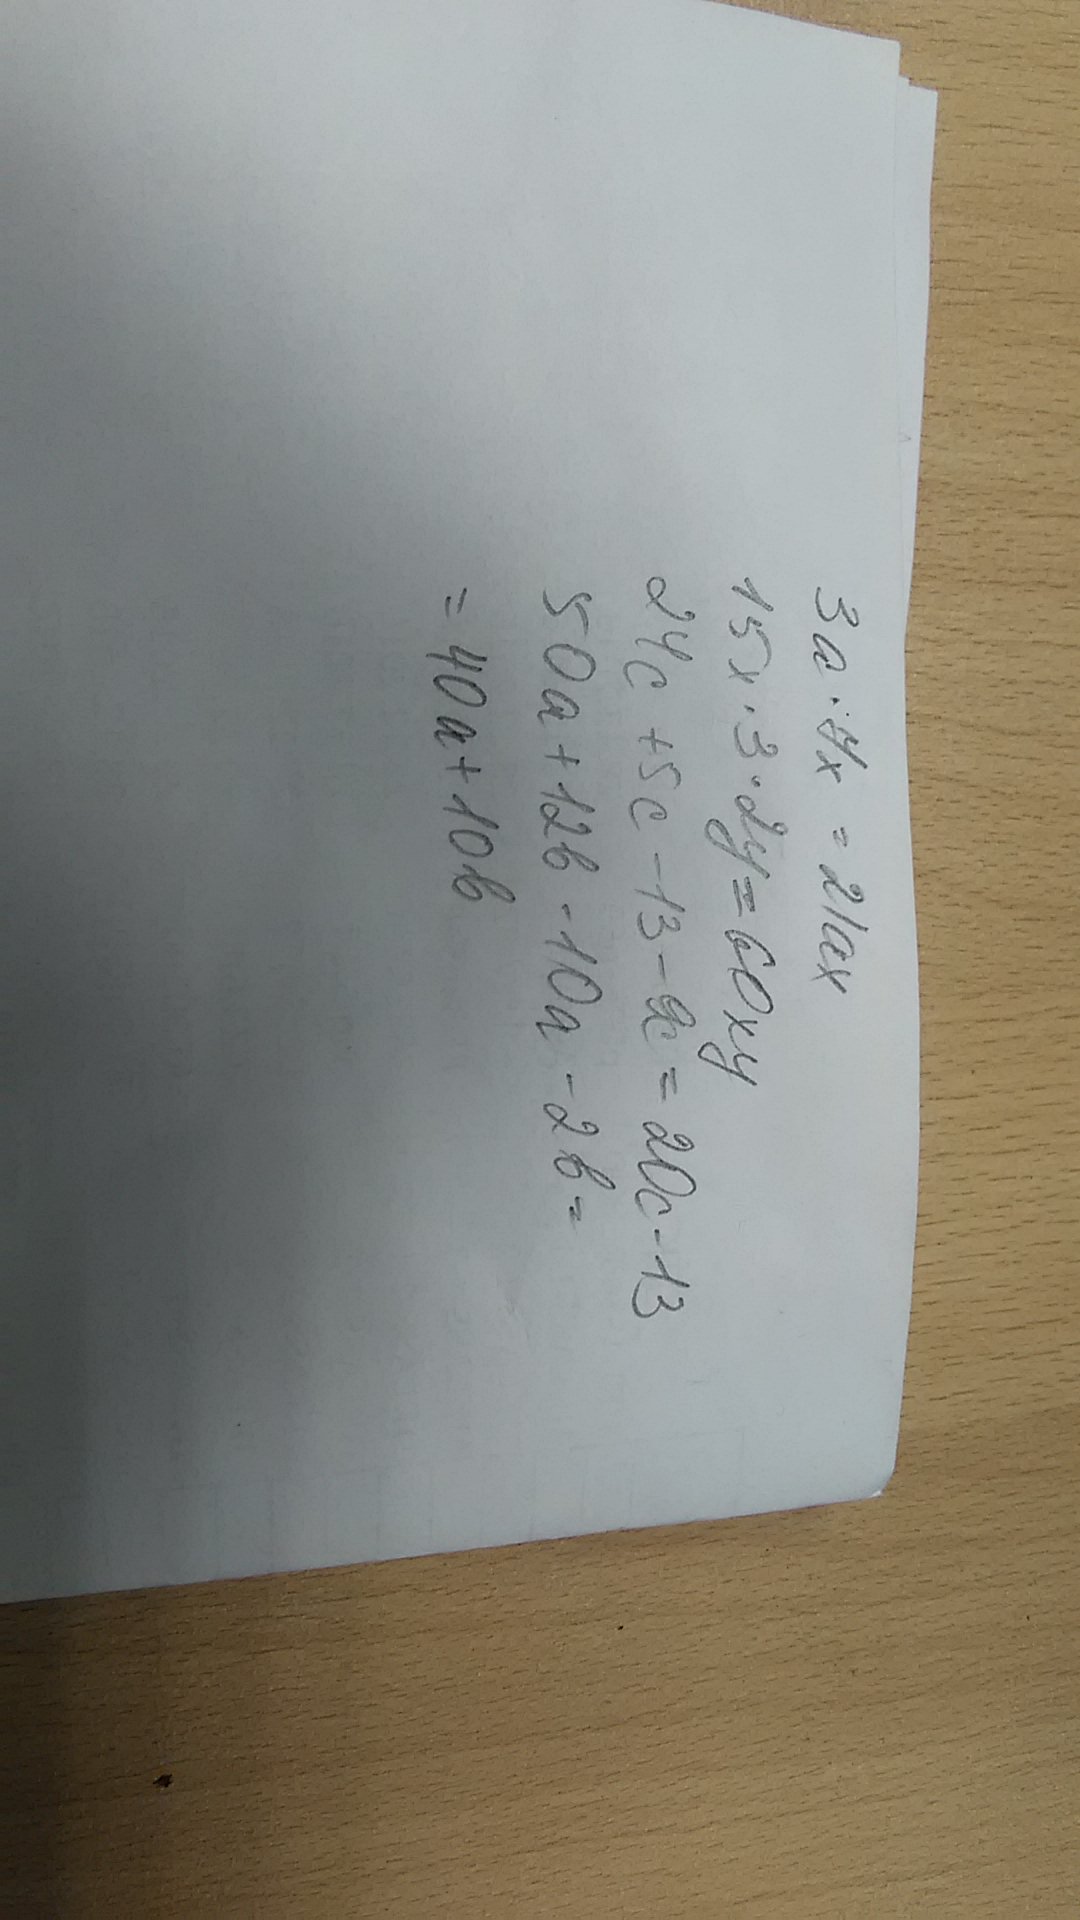 3a · 4x = 21ax
15x · 3 · 2y = 60xy
24c + 5c - 13 - 9c = 20c - 13
50a + 12b - 10a - 2b =
= 40a + 10b